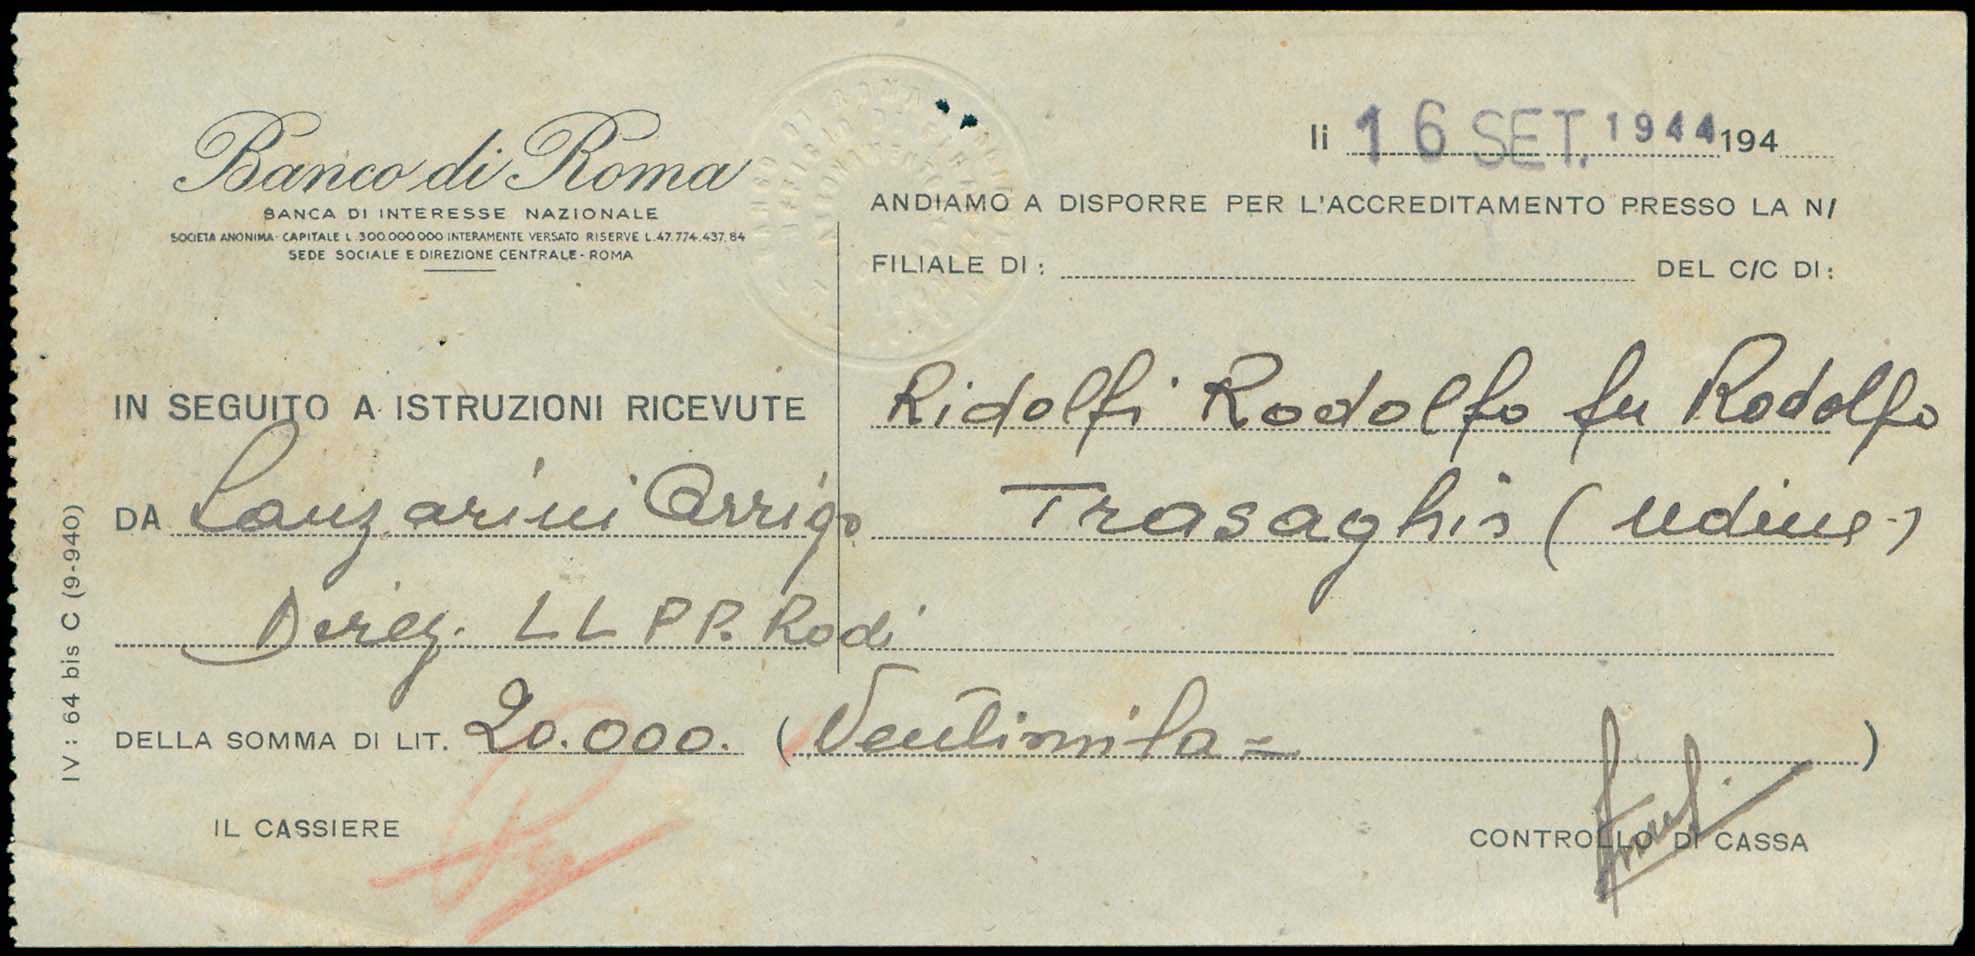 Banco di Roma
BANCA DI INTERESSE NAZIONALE
SOCIETA ANONIMA - CAPITALE L. 300.000.000 INTERAMENTE VERSATO RISERVE L. 47.774.437,84
SEDE SOCIALE E DIREZIONE CENTRALE - ROMA
li 16 SET. 1944 194
ANDIAMO A DISPORRE PER L'ACCREDITAMENTO PRESSO LA N/
FILIALE DI : DEL C/C DI :
Ridolfi Rodolfo fu Rodolfo
Trasaghis (Udine)
IN SEGUITO A ISTRUZIONI RICEVUTE
DA Lanzarini Arrigo
Direz. LL PP. Rodi
DELLA SOMMA DI LIT. 20.000. (Ventimila = )
IL CASSIERE
CONTROLLO DI CASSA
IV : 64 bis C (9-940)